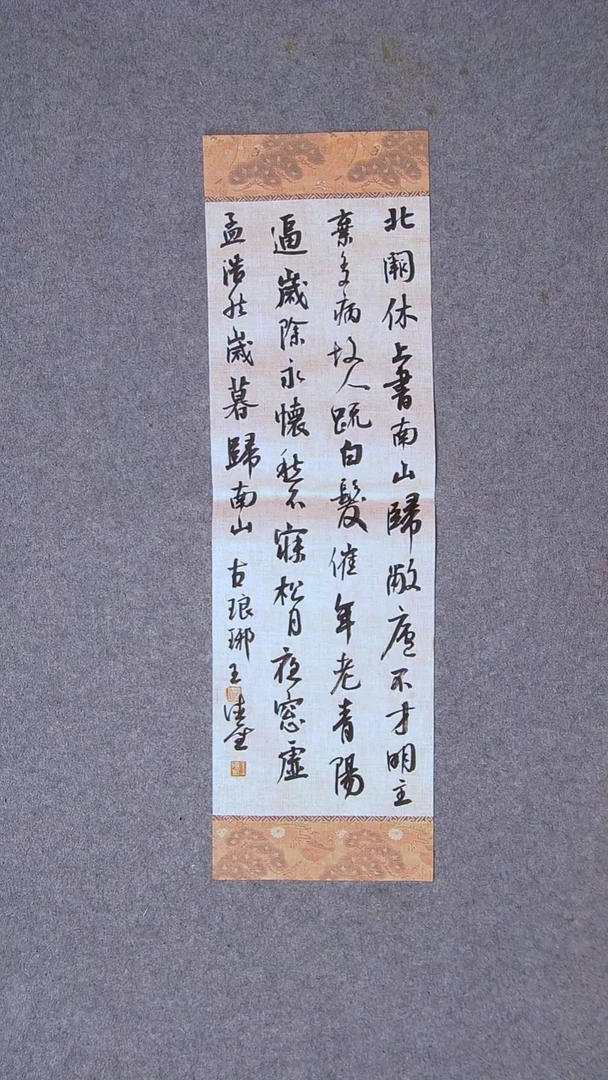 北闕休上書南山歸敝廬不才明主
棄多病故人疏白髮催年老青陽
逼歲除永懷愁不寐松月夜窓虛
孟浩然歲暮歸南山 古琅琊王